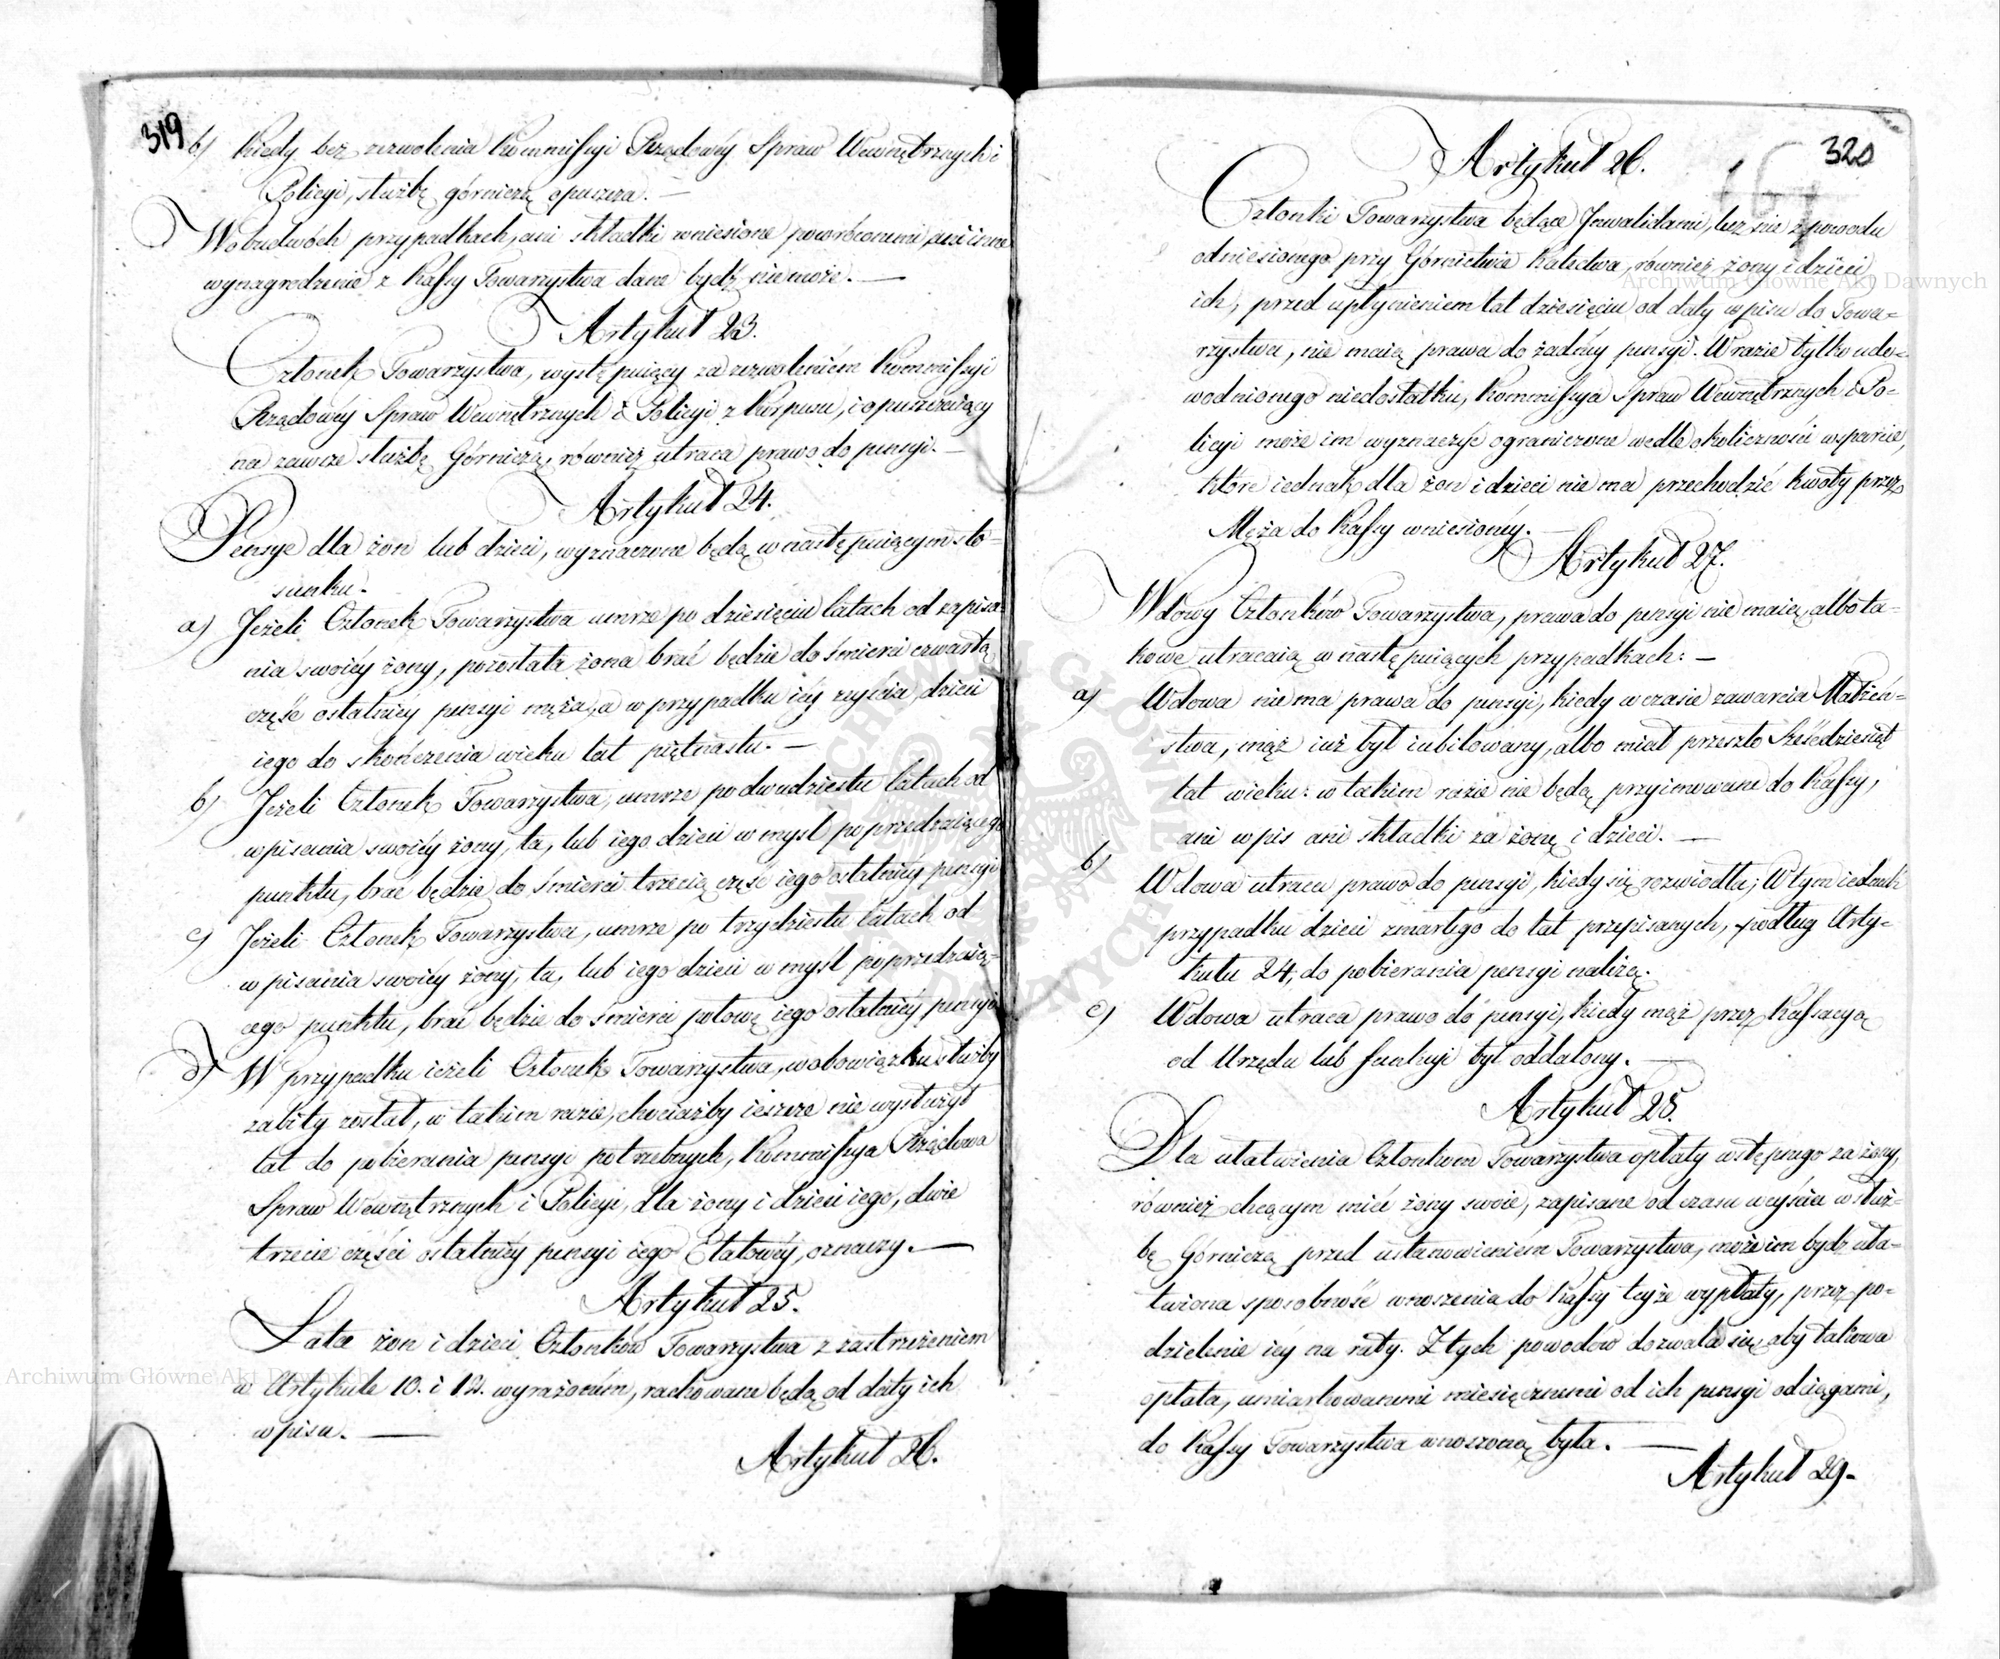 319
b) Kiedy bez zezwolenia Kommissyi Rządowéy Spraw Wewnętrznych i
Policyi, służbę górniczą opuszcza. —
W obudwóch przypadkach, ani składki wniesione powróconemi ani inne
wynagrodzenie z Kassy Towarzystwa dane bydź niemoże. —
Artykuł 23.
Członek Towarzystwa, występuiący za zezwoleniem Kommissyi
Rządowéy Spraw Wewnętrznych i Policyi z Korpusu, i opuszczaiący
na zawsze służbę Górniczą, również utraca prawo do pensyi. —
Artykuł 24.
Pensye dla żon lub dzieci, wyznaczone będą w następuiącym sto-
sunku.
a) Jeżeli Członek Towarzystwa umrze po dziesięciu latach od zapisa-
nia swoiéy żony, pozostała żona brać będzie do śmierci czwartą
część ostatniéy pensyi męża, a w przypadku iéy zeyścia, dzieci
iego do skończenia wieku lat piętnastu. —
b) Jeżeli Członek Towarzystwa, umrze po dwudziestu latach od
wpisania swoiéy żony, ta, lub iego dzieci w myśl poprzedzaiącego
punktu, brać będzie do śmierci trzecią część iego ostatniéy pensyi
c) Jeżeli Członek Towarzystwa, umrze po trzydziestu latach od
wpisania swoiéy żony, ta, lub iego dzieci w myśl poprzedzaią-
cego punktu, brać będzie do śmierci połowę iego ostatniéy pensyi
d) W przypadku ieżeli Członek Towarzystwa, w obowiązku służby
zabity został, w takim razie, chociażby ieszcze nie wysłużył
lat do pobierania pensyi potrzebnych, Kommissya Rządowa
Spraw Wewnętrznych i Policyi, dla żony i dzieci iego, dwie
trzecie części ostatniéy pensyi iego Etatowéy, oznaczy. —
Artykuł 25.
Lata żon i dzieci Członków Towarzystwa z zastrzeżeniem
w Artykule 10. i 12. wyrażoném, rachowane będą od daty ich
wpisu. —
Artykuł 26.
320
Artykuł 26.
Członki Towarzystwa będące Inwalidami, lecz nie z powodu
odniesionego przy Górnictwie kalectwa, również żony i dzieci
ich, przed upłynieniem lat dziesięciu od daty wpisu do Towa-
rzystwa, nie maią prawa do żadnéy pensyi. W razie tylko udo-
wodnionego niedostatku, Kommissya Spraw Wewnętrznych i Po-
licyi może im wyznaczyć ograniczone wedle okoliczności wsparcie,
które iednak dla żon i dzieci nie ma przechodzić kwoty przez
Męża do Kassy wniesionéy. —
Artykuł 27.
Wdowy Członków Towarzystwa, prawa do pensyi nie maią, albo ta-
kowe utracaią w następuiących przypadkach: —
a) Wdowa nie ma prawa do pensyi, kiedy w czasie zawarcia Małżeń-
stwa, mąż iuż był iubilowany, albo miał przeszło Sześćdziesiąt
lat wieku: w takim razie nie będą przyimowane do Kassy,
ani wpis ani składki za żonę i dzieci. —
b) Wdowa utraca prawo do pensyi, kiedy się rozwiodła; W tym iednak
przypadku dzieci zmarłego do lat przepisanych, podług Arty-
kułu 24, do pobierania pensyi należą.
c) Wdowa utraca prawo do pensyi, kiedy mąż przez Kassacyą
od Urzędu lub funkcyi był oddalony. —
Artykuł 28.
Dla ułatwienia Członkom Towarzystwa opłaty wstępnego za żony,
również chcącym mieć żony swoie, zapisane od czasu weyścia w służ-
bę Górniczą przed ustanowieniem Towarzystwa, może im bydź uła-
twiona sposobność wnoszenia do Kassy teyże wypłaty, przez po-
dzielenie iéy na raty. Z tych powodów dozwala się, aby takowa
opłata, umiarkowanemi miesięcznemi od ich pensyi odciągami,
do Kassy Towarzystwa wnoszoną była. —
Artykuł 29.
Archiwum Główne Akt Dawnych
Archiwum Główne Akt Dawnych